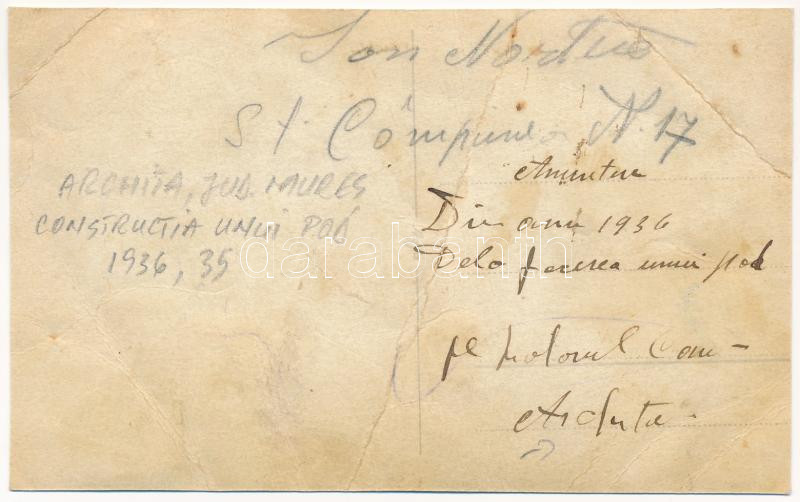 Ion
St. Câmpunea N. 17
ARCHITA, JUD. MUREȘ
CONSTRUCTIA UNUI POD
1936, 35
Amintire
Din anu 1936
Dela facerea unui pod
pe hotarul Com-
darabanth